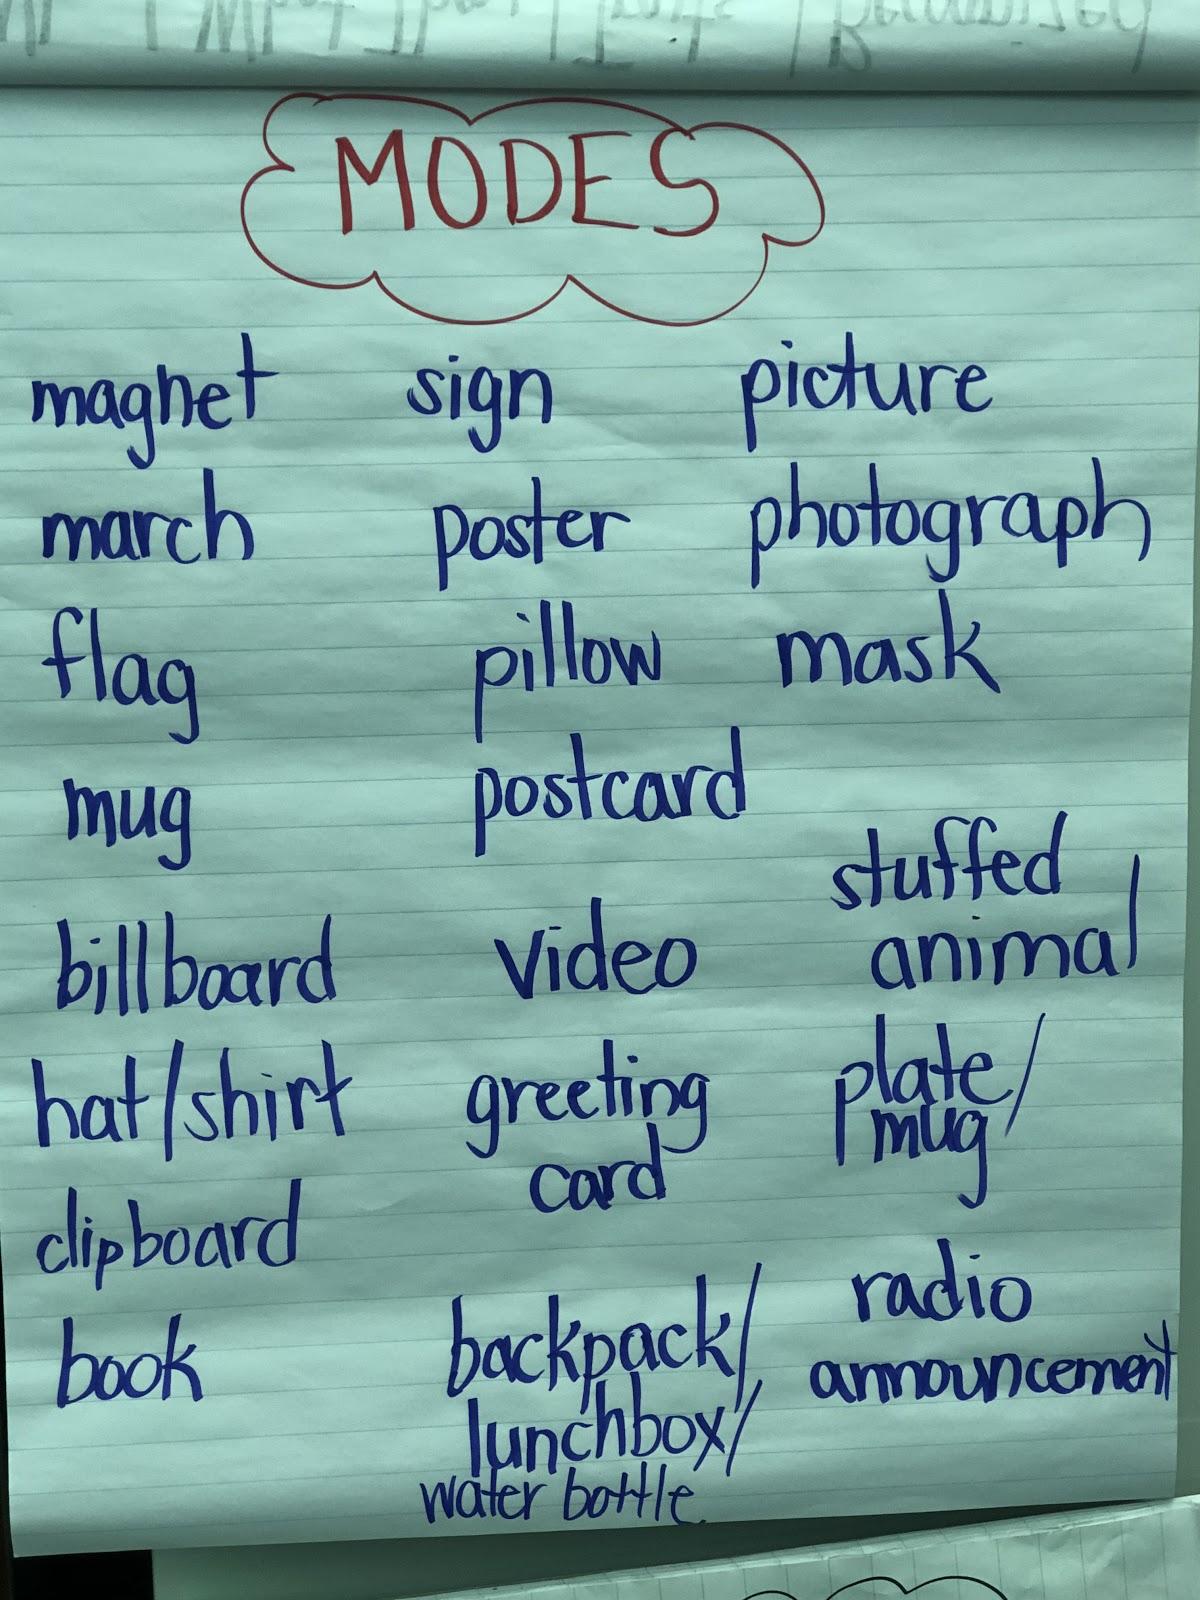 MODES
magnet sign picture
march poster photograph
flag pillow mask
mug postcard
stuffed
animal
billboard video
hat/shirt greeting
card
plate/
mug
clipboard
radio
announcement
book backpack/
lunchbox/
water bottle